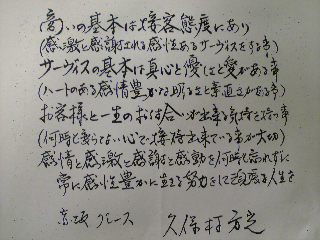 商いの基本は接客態度にあり
(感激と感謝される感性あるサーヴィスをする事)
サーヴィスの基本は真心と優しさと愛がある事
(ハートのある感情豊かな明るさと素直さがある事)
お客様と一生のお付合いが出来る気持を持つ事
(何時も変らない心で接待出来ている事が大切)
感情と感激と感謝と感動を何時も忘れずに
常に感性豊かに生きる努力をして頑張る人生を
久保村方光